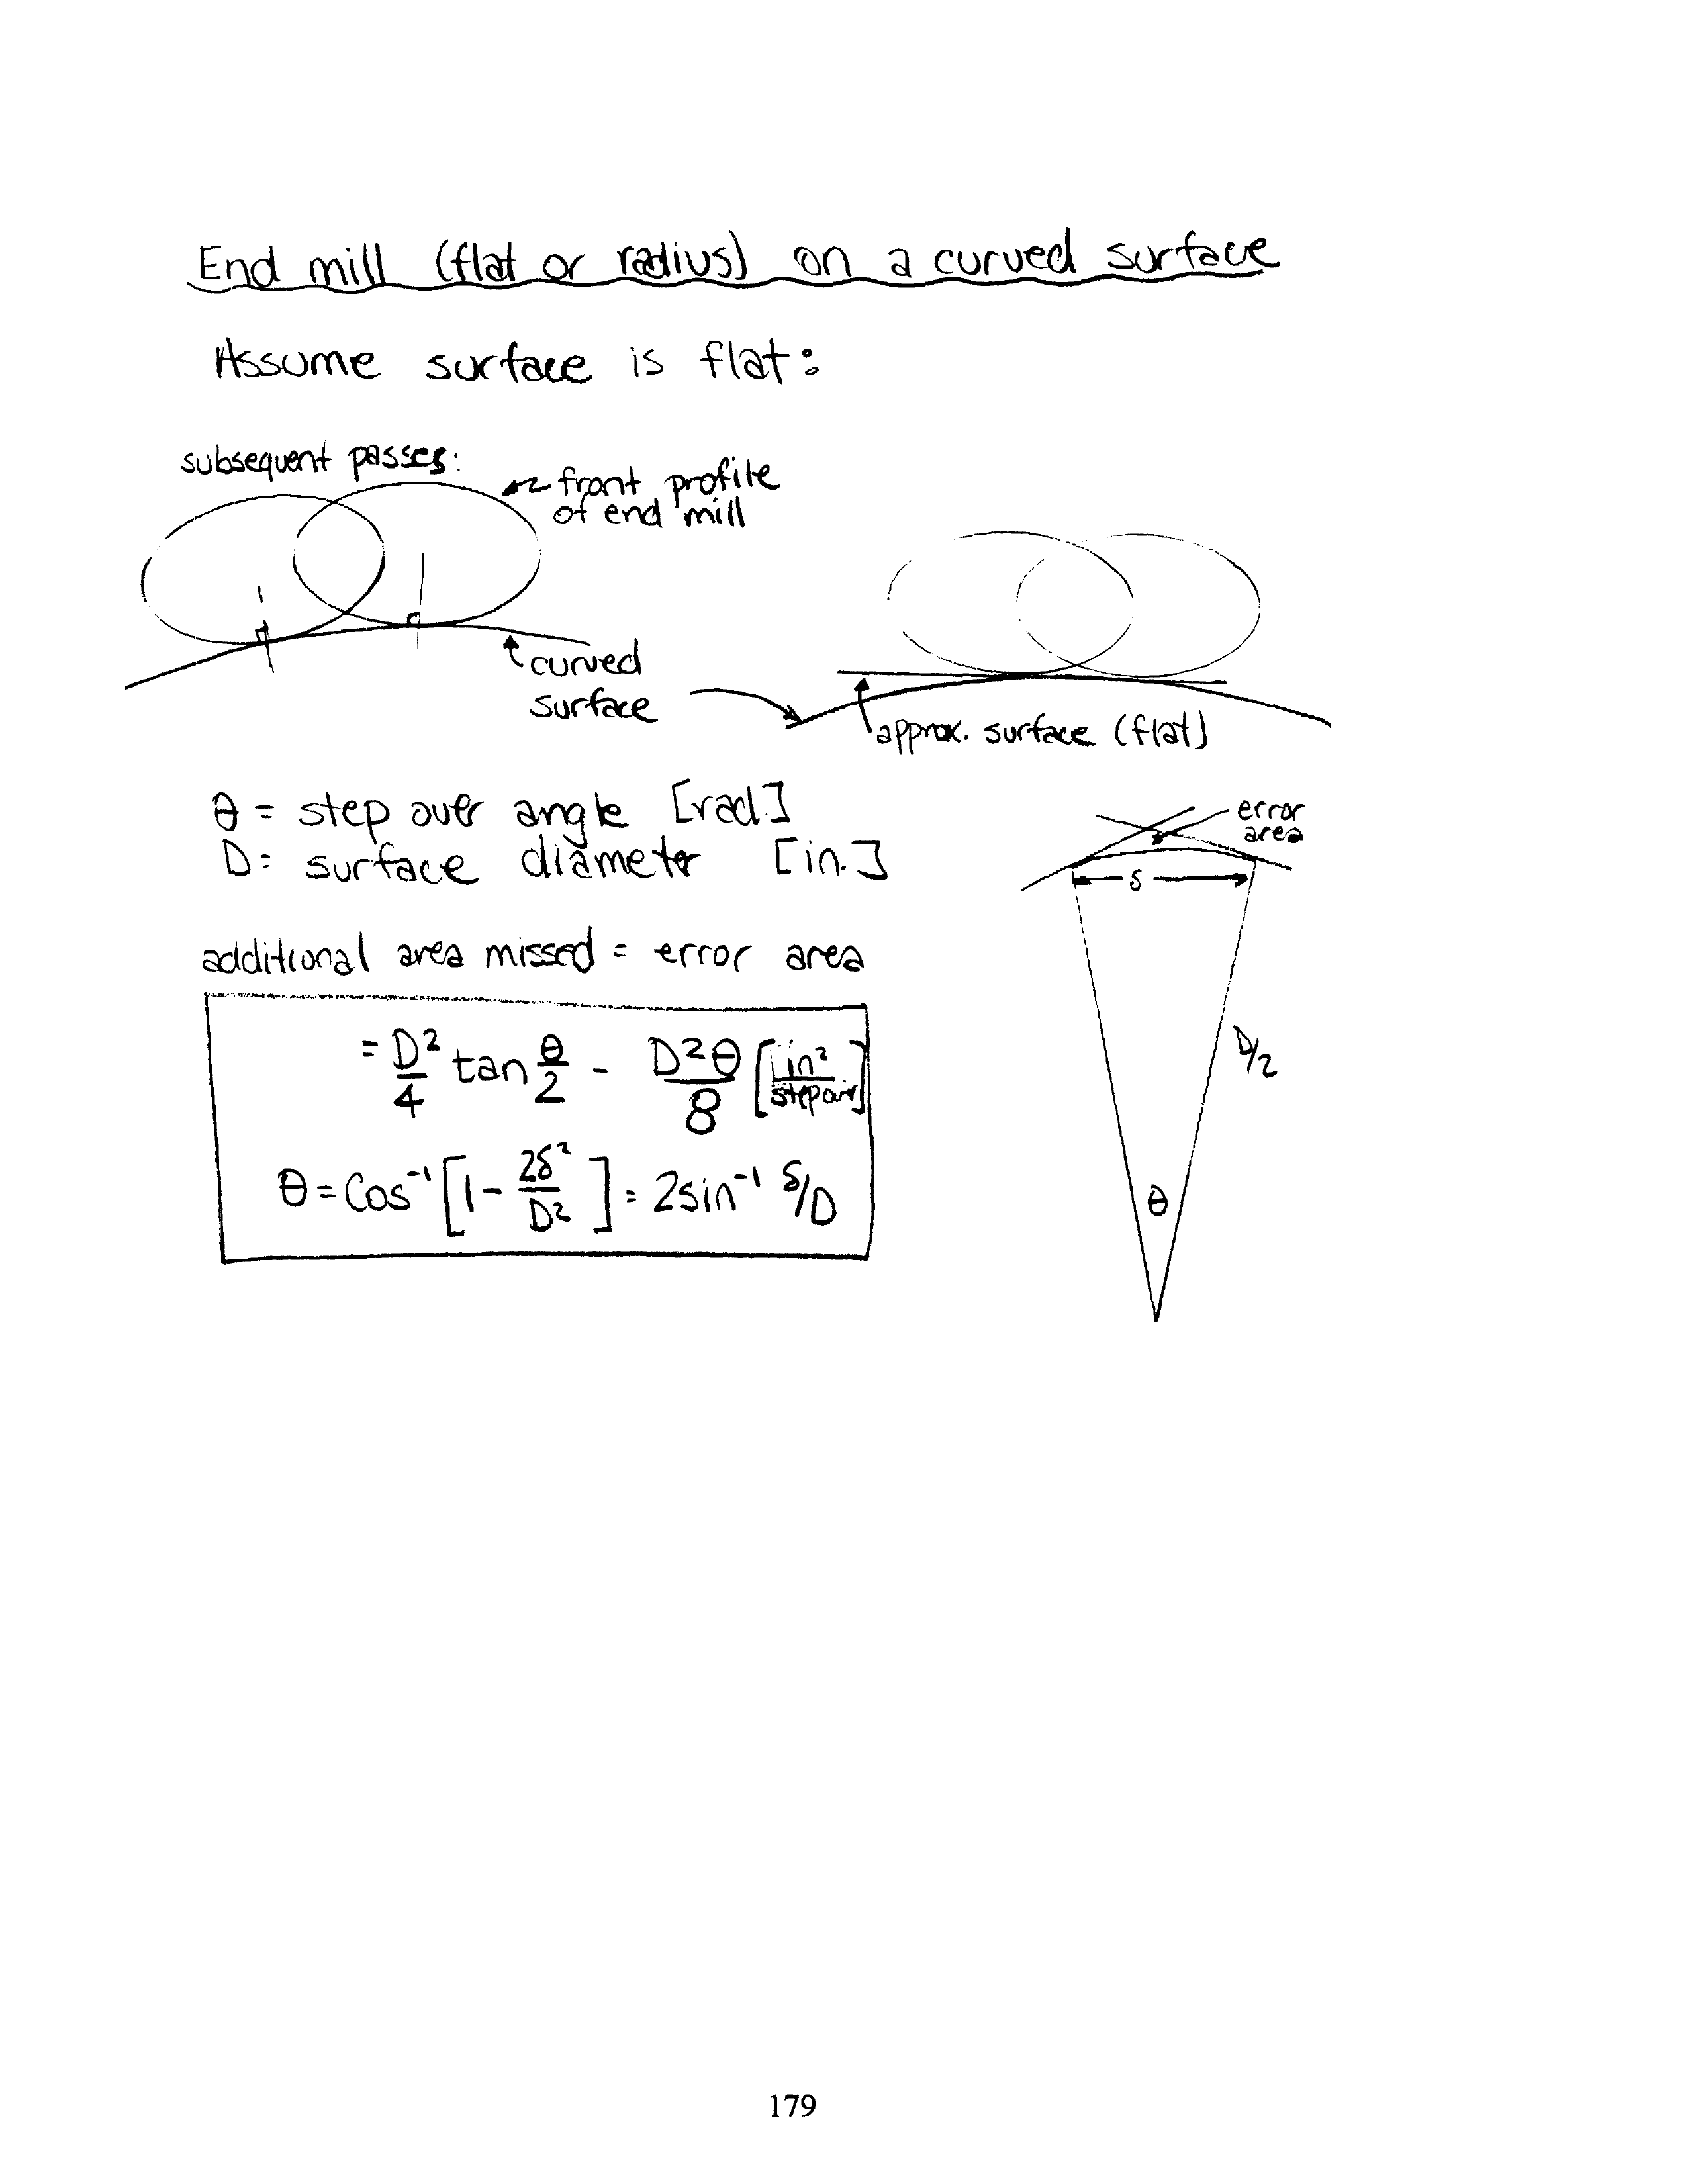 End mill (flat or radius) on a curved surface
Assume surface is flat:
subsequent passes:
front profile
of end mill
curved
surface
approx. surface (flat)
θ = step over angle [rad.]
D = surface diameter [in.]
error
area
δ
additional area missed = error area
= D²/4 tan θ/2 - D²θ/8 [in²/stepover]
θ = cos⁻¹ [1 - 2δ²/D²] = 2sin⁻¹ δ/D
D/2
θ
179